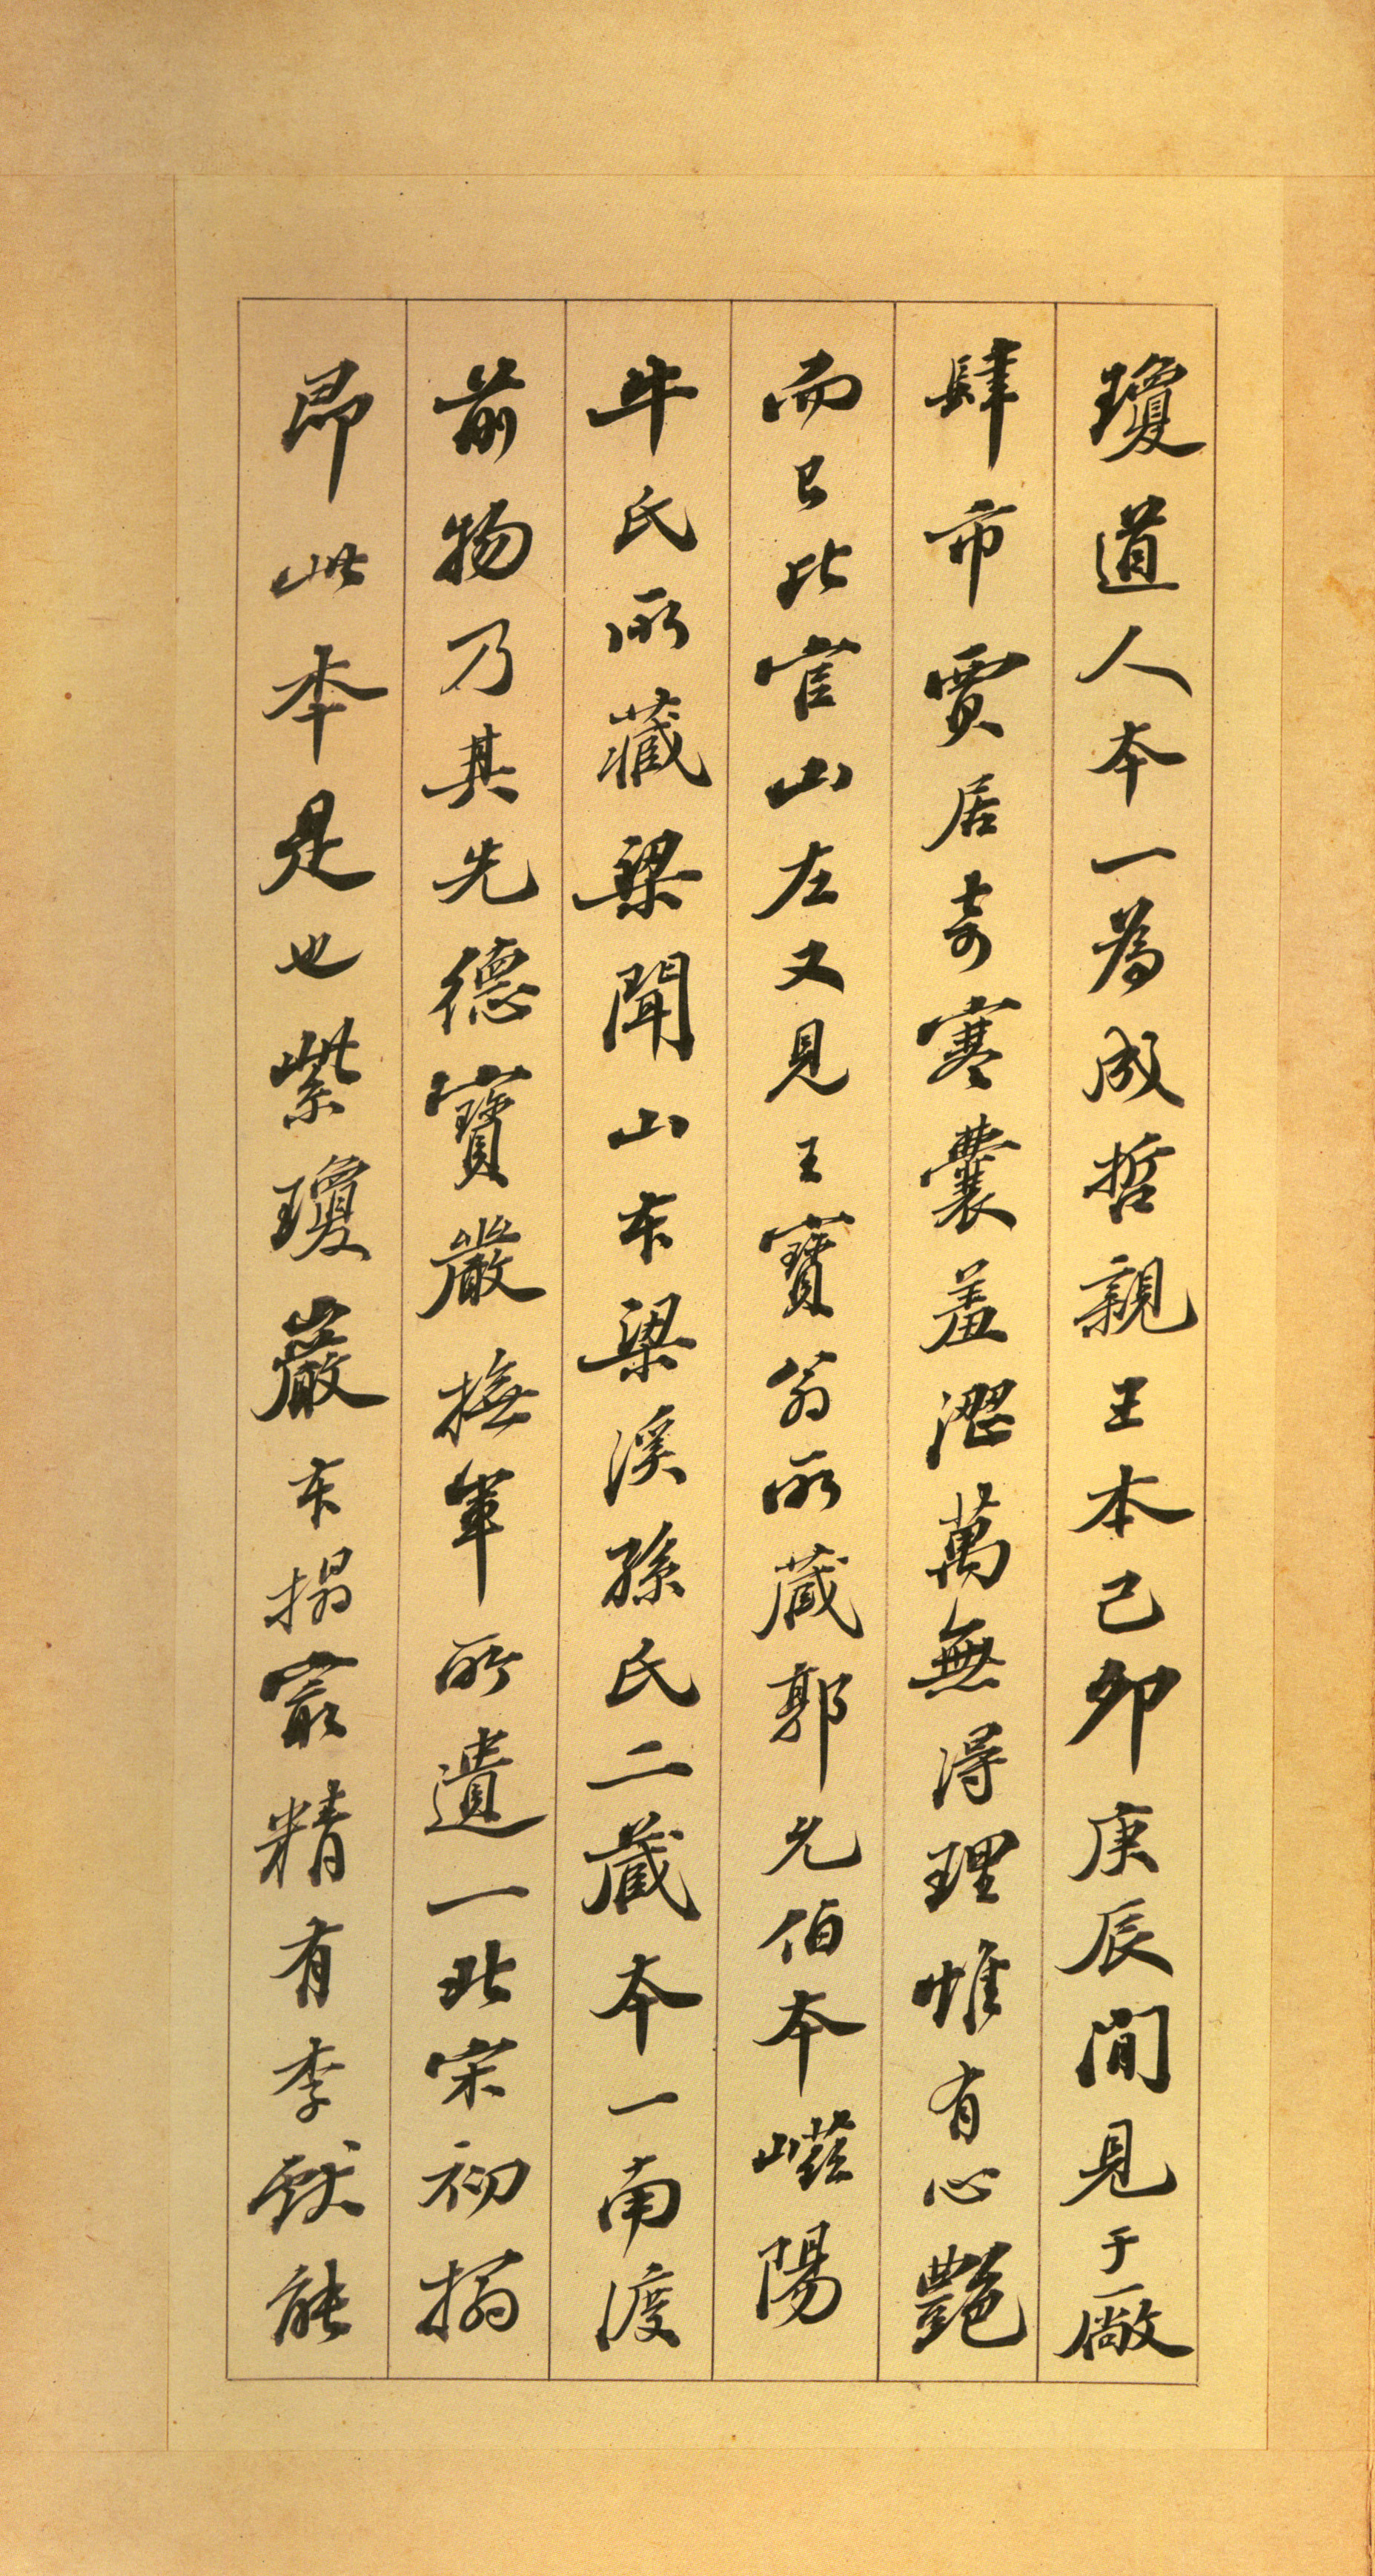 瓊道人本一為成哲親王本己卯庚辰間見于廠
肆市賈居奇寒囊羞澀萬無得理惟有心艷
而已比官山左又見王寶翁所藏郭允伯本嶫陽
牛氏所藏梁聞山本梁溪孫氏二藏本一南渡
前物乃其先德寶嚴撫軍所遺一北宋初搨
即此本是也紫瓊巖本搨最精有李猷能